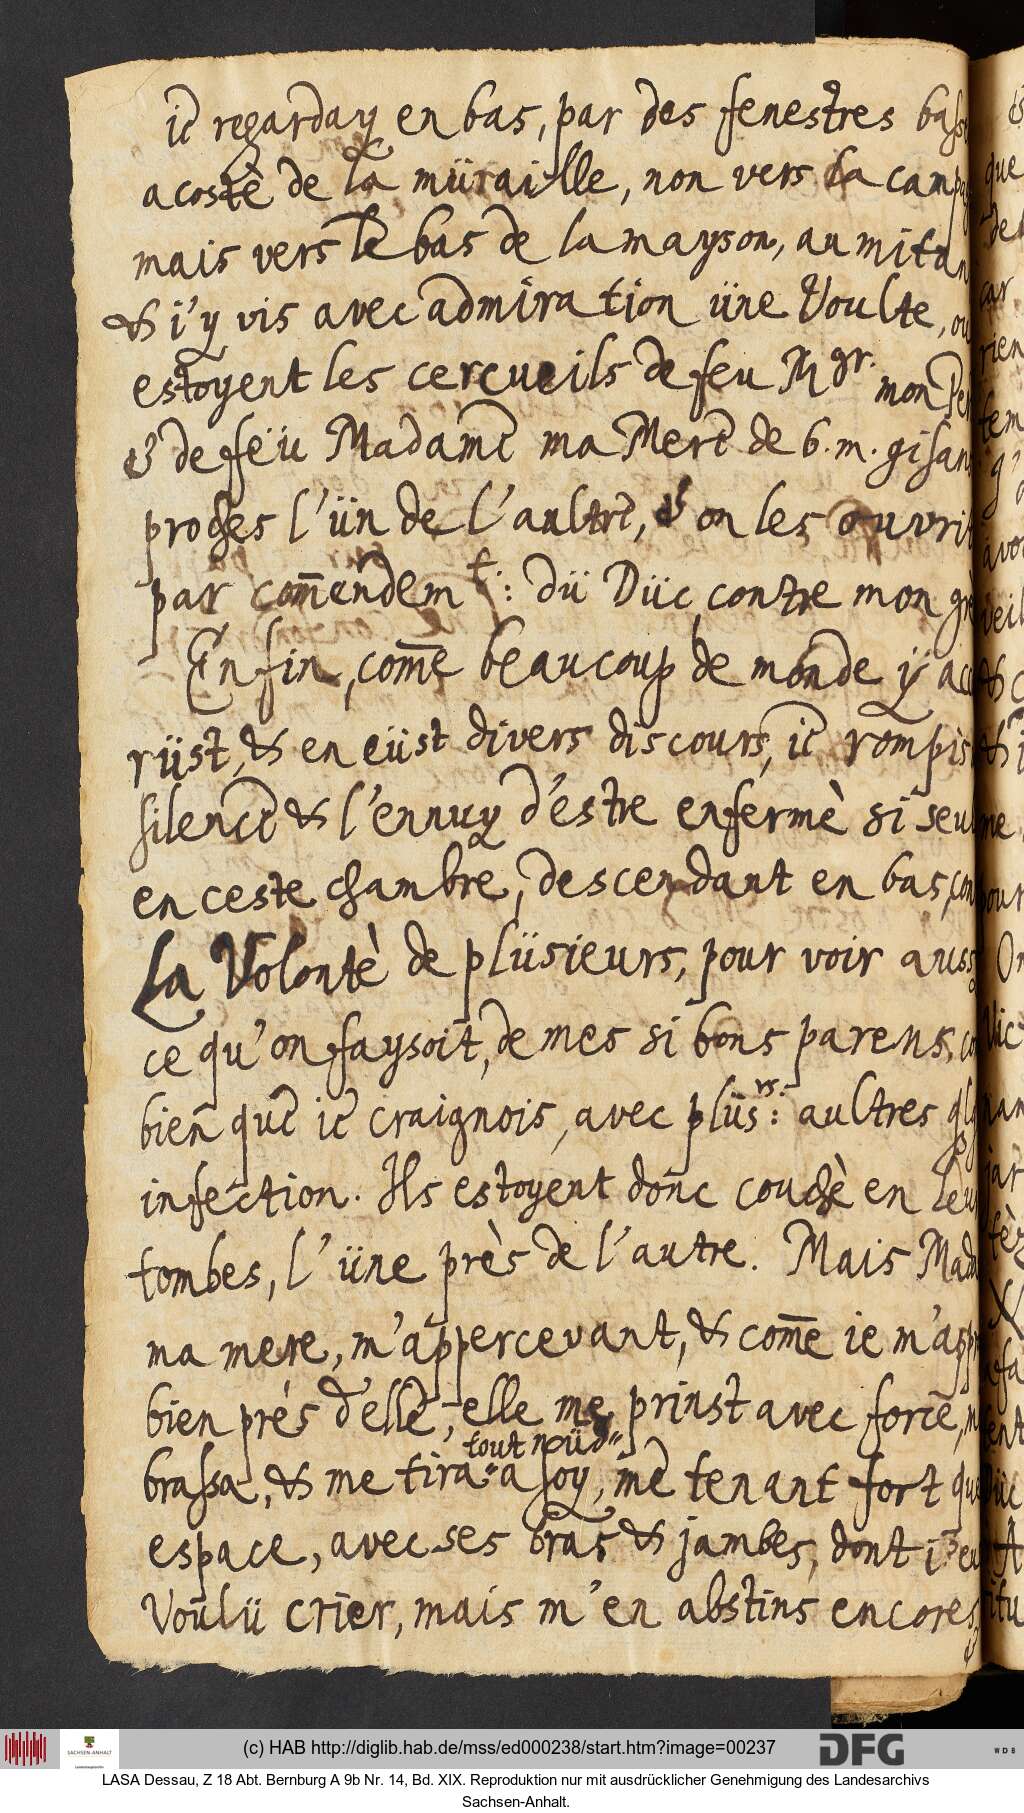 ie regarday en bas, par des fenestres basse
a costè de la müraille, non vers la campa
mais vers le bas de la mayson, au mitan
& i'y vis avec admiration üne Voulte, ou
estoyent les cercueils de feu Mgr. mon Per
& de feü Madame ma Mere de b. m. gisan
proches l'ün de l'aultre, & on les ouvrit
par com̄endemt: dü Düc, contre mon grè
Enfin, com̄e beaucoup de monde ÿ acc
rüst, & en eüst divers discours, ie rompis
silence & l'ennuy d'estre enfermè si seul
en ceste chambre, descendant en bas, con
La Volontè de plüsieurs, pour voir aussy
ce qu'on faysoit, de mes si bons parens, co
bien que ie craignois, avec plüsrs: aultres qlq
infection. Ils estoyent donc couchè en leu
tombes, l'üne près de l'autre. Mais Mada
ma mere, m'appercevant, & com̄e ie m'app
bien prés d'elle, elle me prinst avec force, m
tout nüd
brassa, & me tira a soy, me tenant fort que
espace, avec ses bras & jambes, dont i'eu
Voulü crier, mais m'en abstins encores,
&
que
car
rien
veil
&
me
pour
(c) HAB http://diglib.hab.de/mss/ed000238/start.htm?image=00237
SACHSEN-ANHALT
Landesarchiv
DFG
WDB
LASA Dessau, Z 18 Abt. Bernburg A 9b Nr. 14, Bd. XIX. Reproduktion nur mit ausdrücklicher Genehmigung des Landesarchivs
Sachsen-Anhalt.